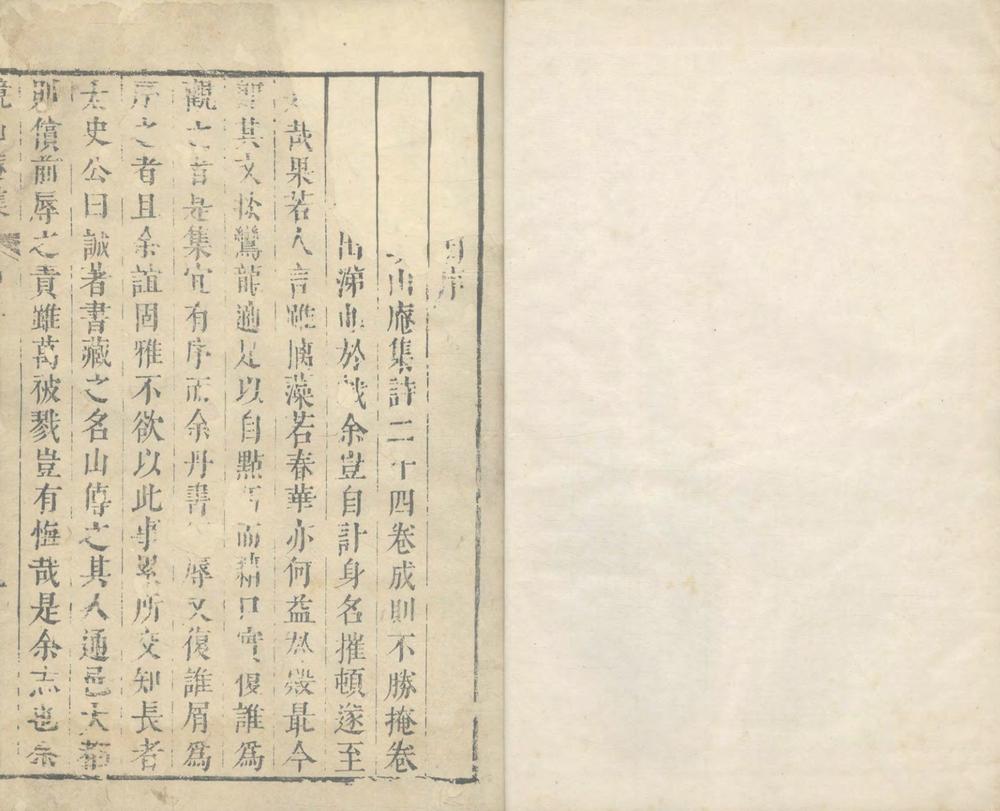 自序
山庵集詩二十四卷成則不勝掩卷
出涕曲於戲余豈自計身名摧頓遂至
哉果若人言雖摛藻若春華亦何益於殿最今
其文於鸞龍適足以自點而藉口實復誰為
觀之者是集宜有序而余丹書辱又復誰屑為
序之者且余誼固雅不欲以此事累所交知長者
太史公曰誠著書藏之名山傳之其人通邑大都
則償前辱之責雖萬被戮豈有悔哉是余志也余
山庵集